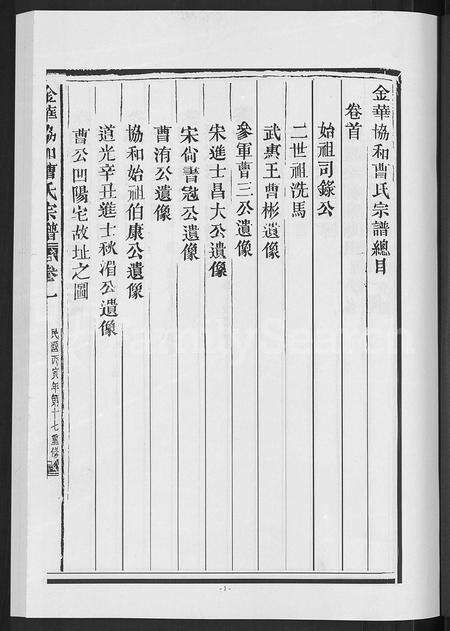 金華協和曹氏宗譜總目
卷首
始祖司錄公
二世祖洗馬
武惠王曹彬遺像
參軍曹三公遺像
宋進士昌大公遺像
宋尙書冠公遺像
曹洧公遺像
協和始祖伯康公遺像
道光辛丑進士秋湄公遺像
曹公凹陽宅故址之圖
金華協和曹氏宗譜 卷一
民國丙寅年第十七重修
FamilySearch